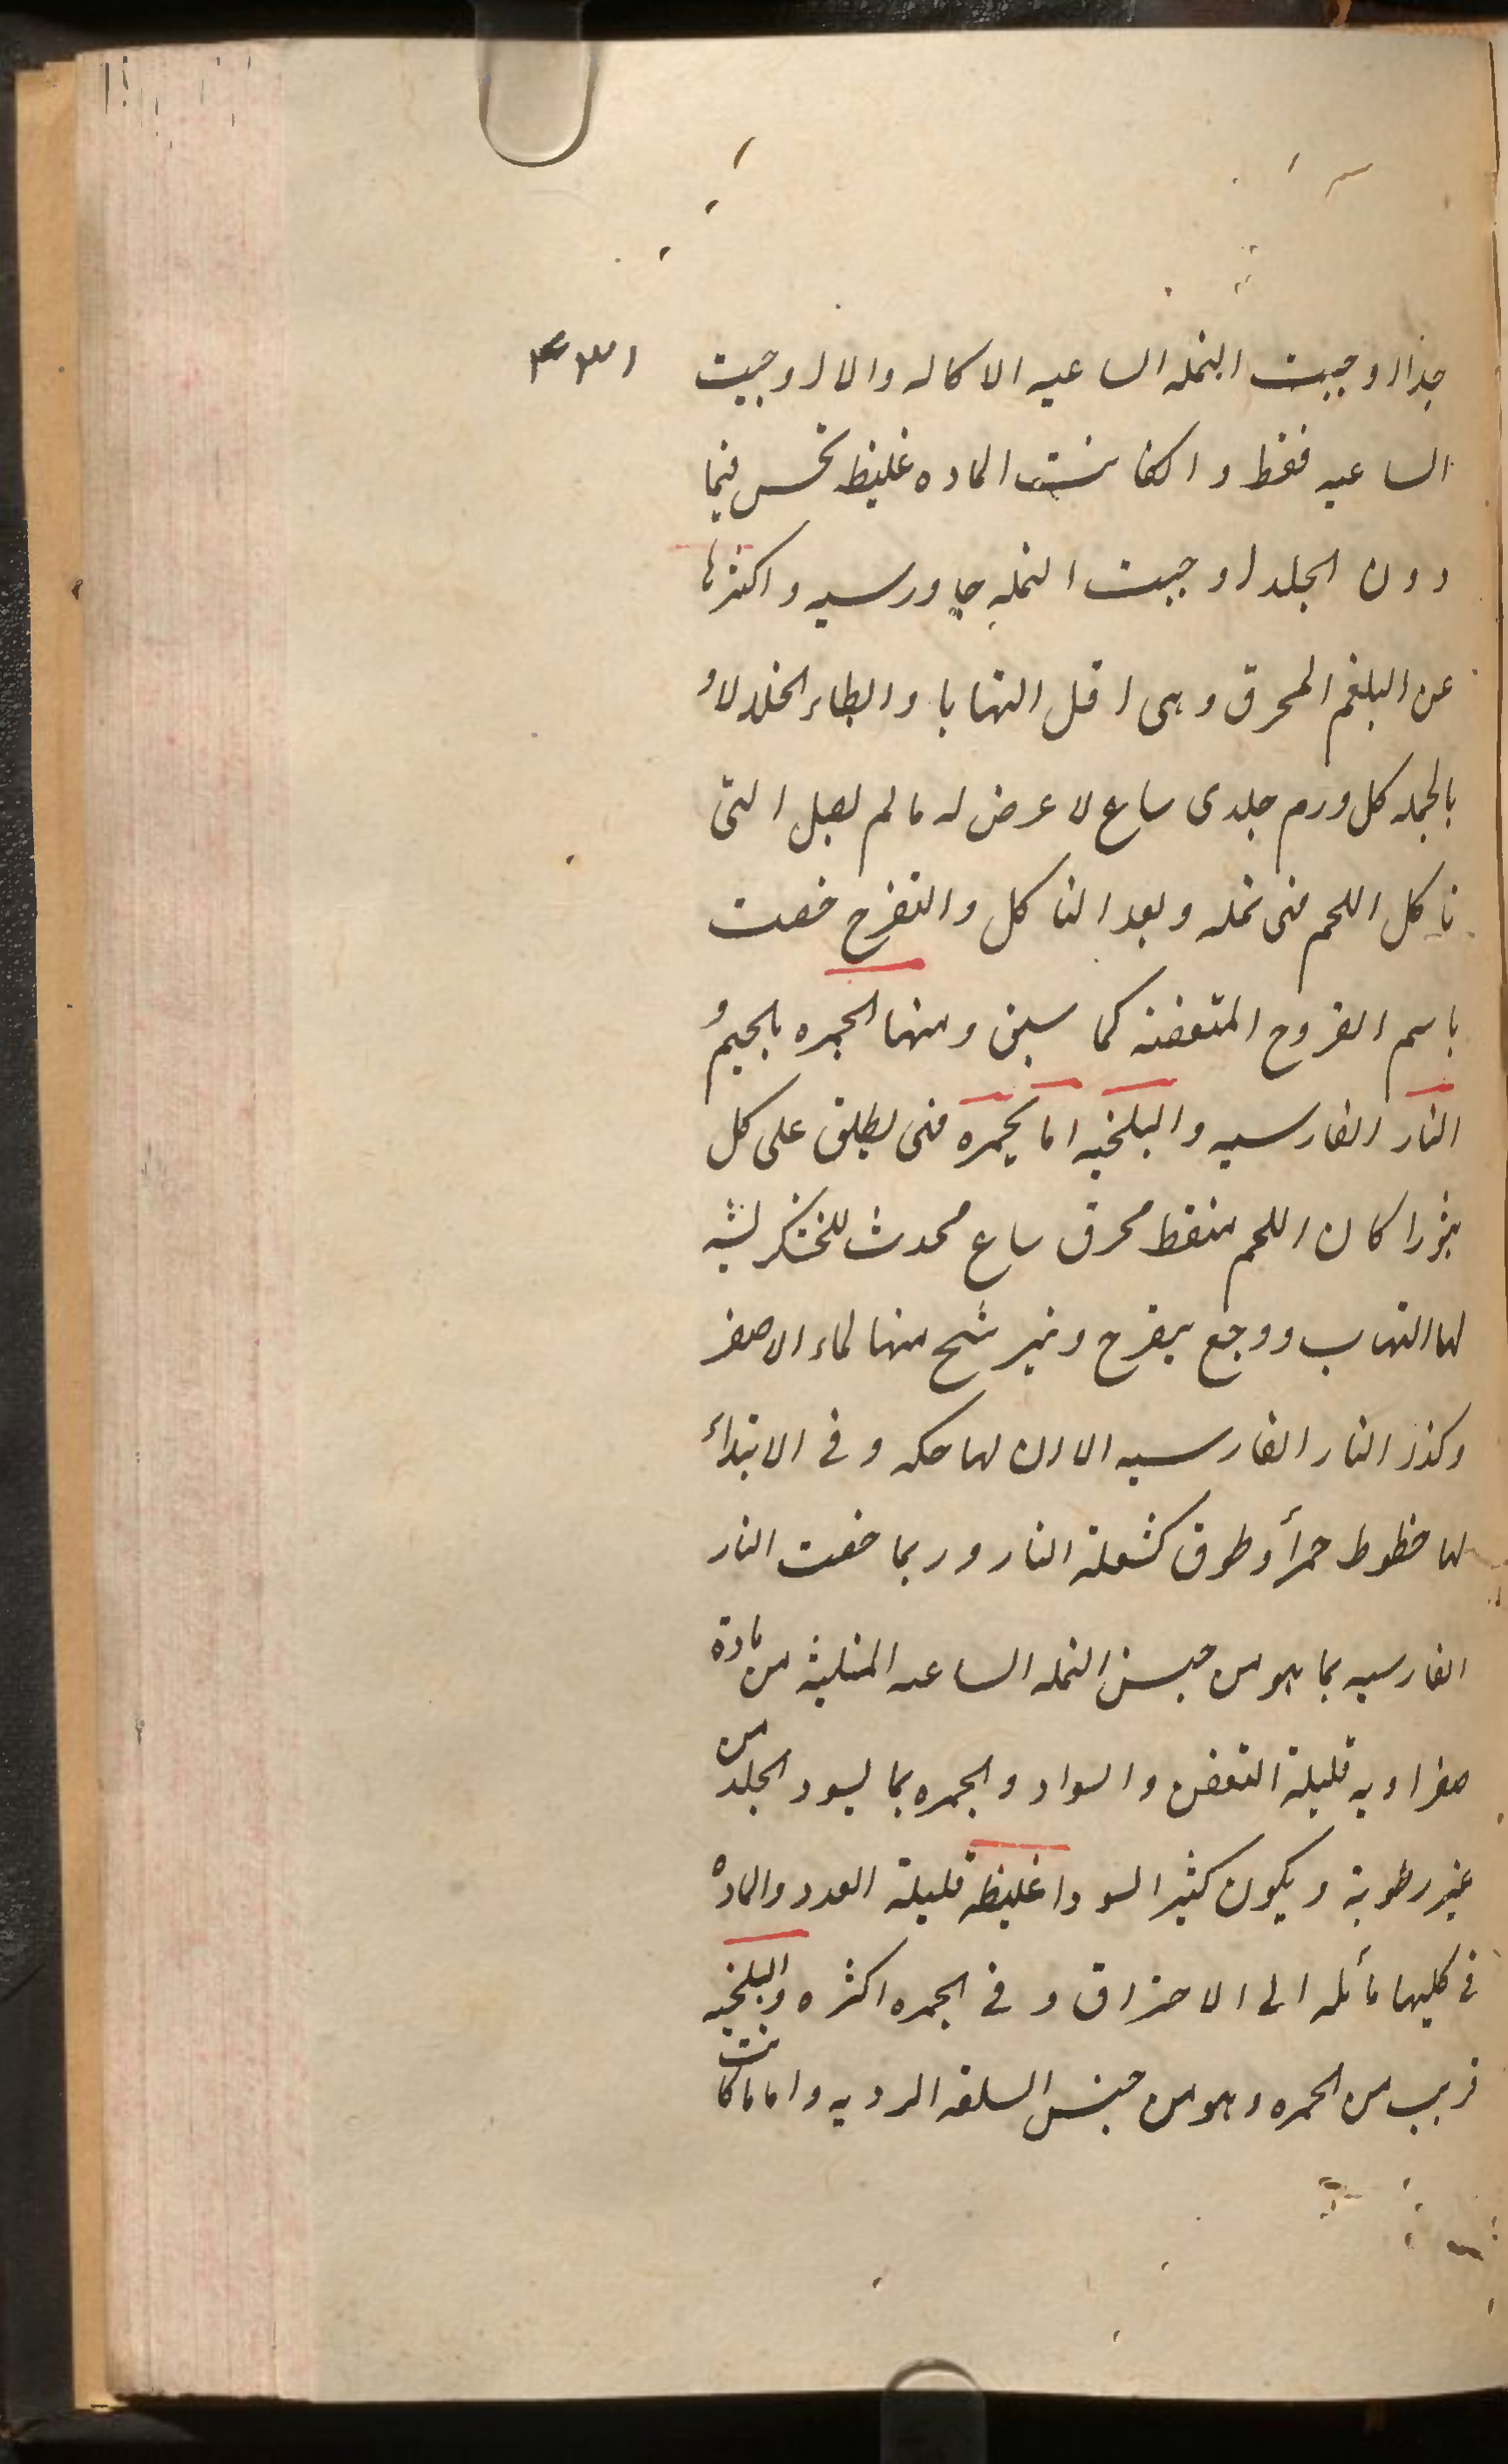 جدا اوجبت النمله الساعیه الاکاله والا اوجبت
الساعیه فقط و انکانت الماده غلیظه تحس فیما
دون الجلد اوجبت النمله جاورسیه و اکثرها
عن البلغم المحرق وهی اقل التهابا و ابطاء انحلالا و
بالجمله کل ورم جلدی ساع لا عرض له مالم
تاکل اللحم فهی نمله و بعد التاکل والتقرح خصت
باسم القروح المتعفنه کما سبق ومنها الجمره بالجیم و
النار الفارسیه والبلخیه اما الجمره فهی یطلق علی کل
بثر اکال اللحم منفط محرق ساع محدث للخشکریشه
لها التهاب ووجع یقرح و یترشح منها الماء الاصفر
وکذا النار الفارسیه الا ان لها حکه و فی الابتداء
لها خطوط حمراء و طوق کشعلة النار و ربما خصت النار
الفارسیه بما هو من جنس النمله الساعیه من مادة
صفراویه قلیلة التعفن والسواد و الجمره بما یسود الجلد من
غیر رطوبة و یکون کثیر السودا غلیظه قلیلة العدد والماده
فی کلیهما مائله الی الاحتراق و فی الجمره اکثر والبلخیه
قریب من الجمره و هو من جنس الردیه و اما ما کانت